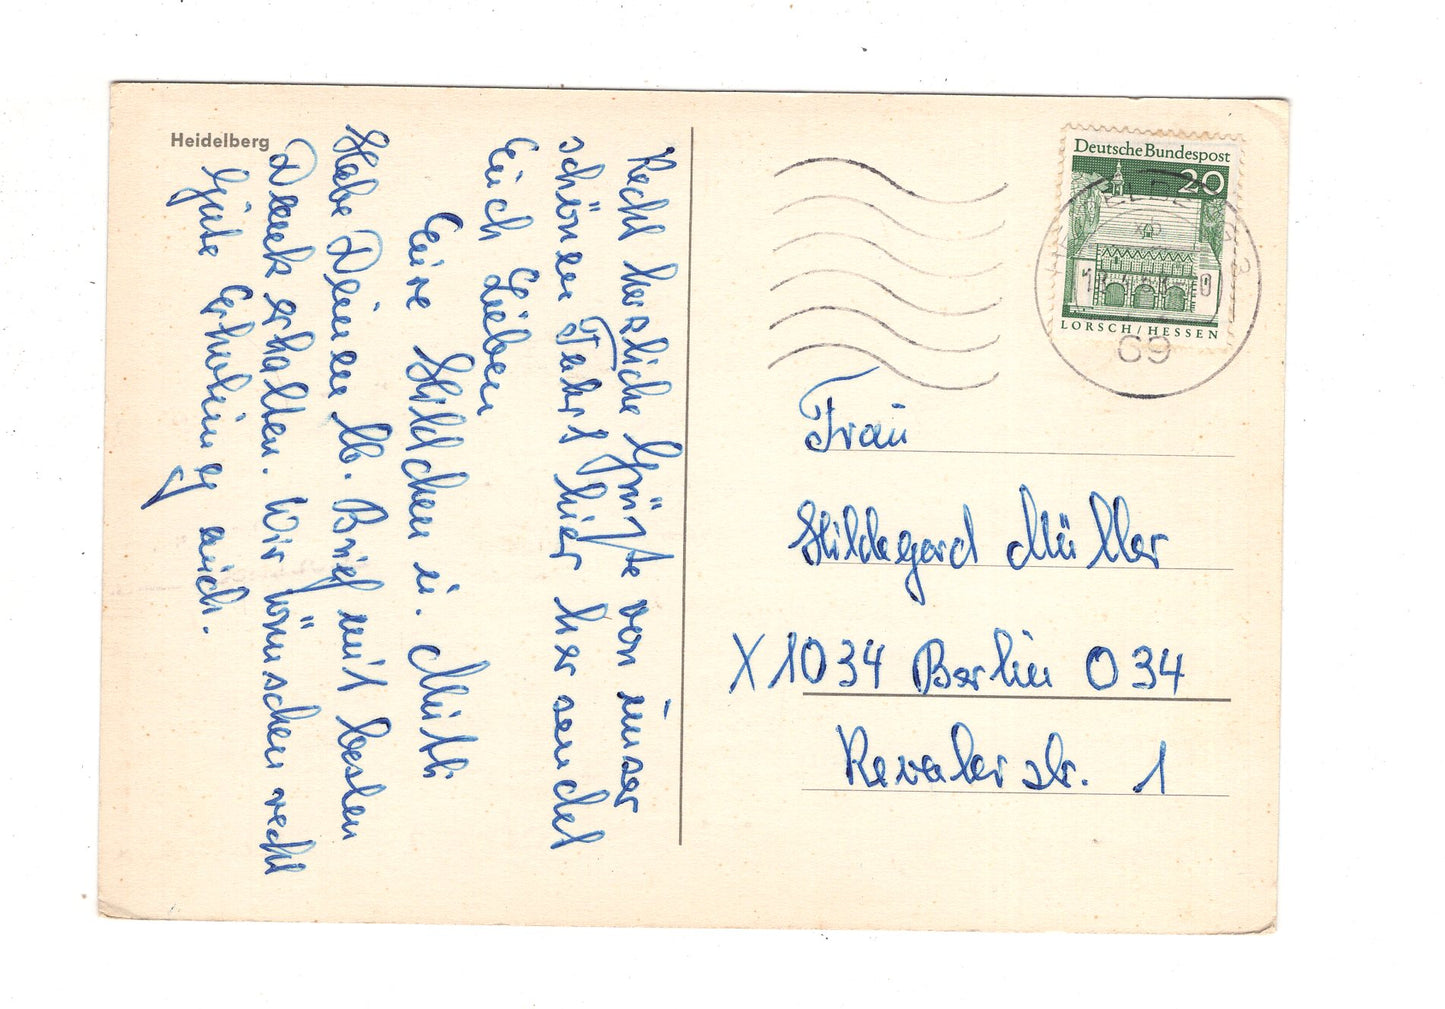 Heidelberg
Recht herzliche Grüße von unser
schönen Fahrt hier her sendet
Euch Lieben
Eure Hildchen u. Mutti
Habe Deinen lb. Brief mit besten
Dank erhalten. Wir wünschen recht
gute Erholung
auch.
Deutsche Bundespost
20
LORSCH/HESSEN
69
Frau
Hildegard Müller
X 1034 Berlin O 34
Revaler str. 1